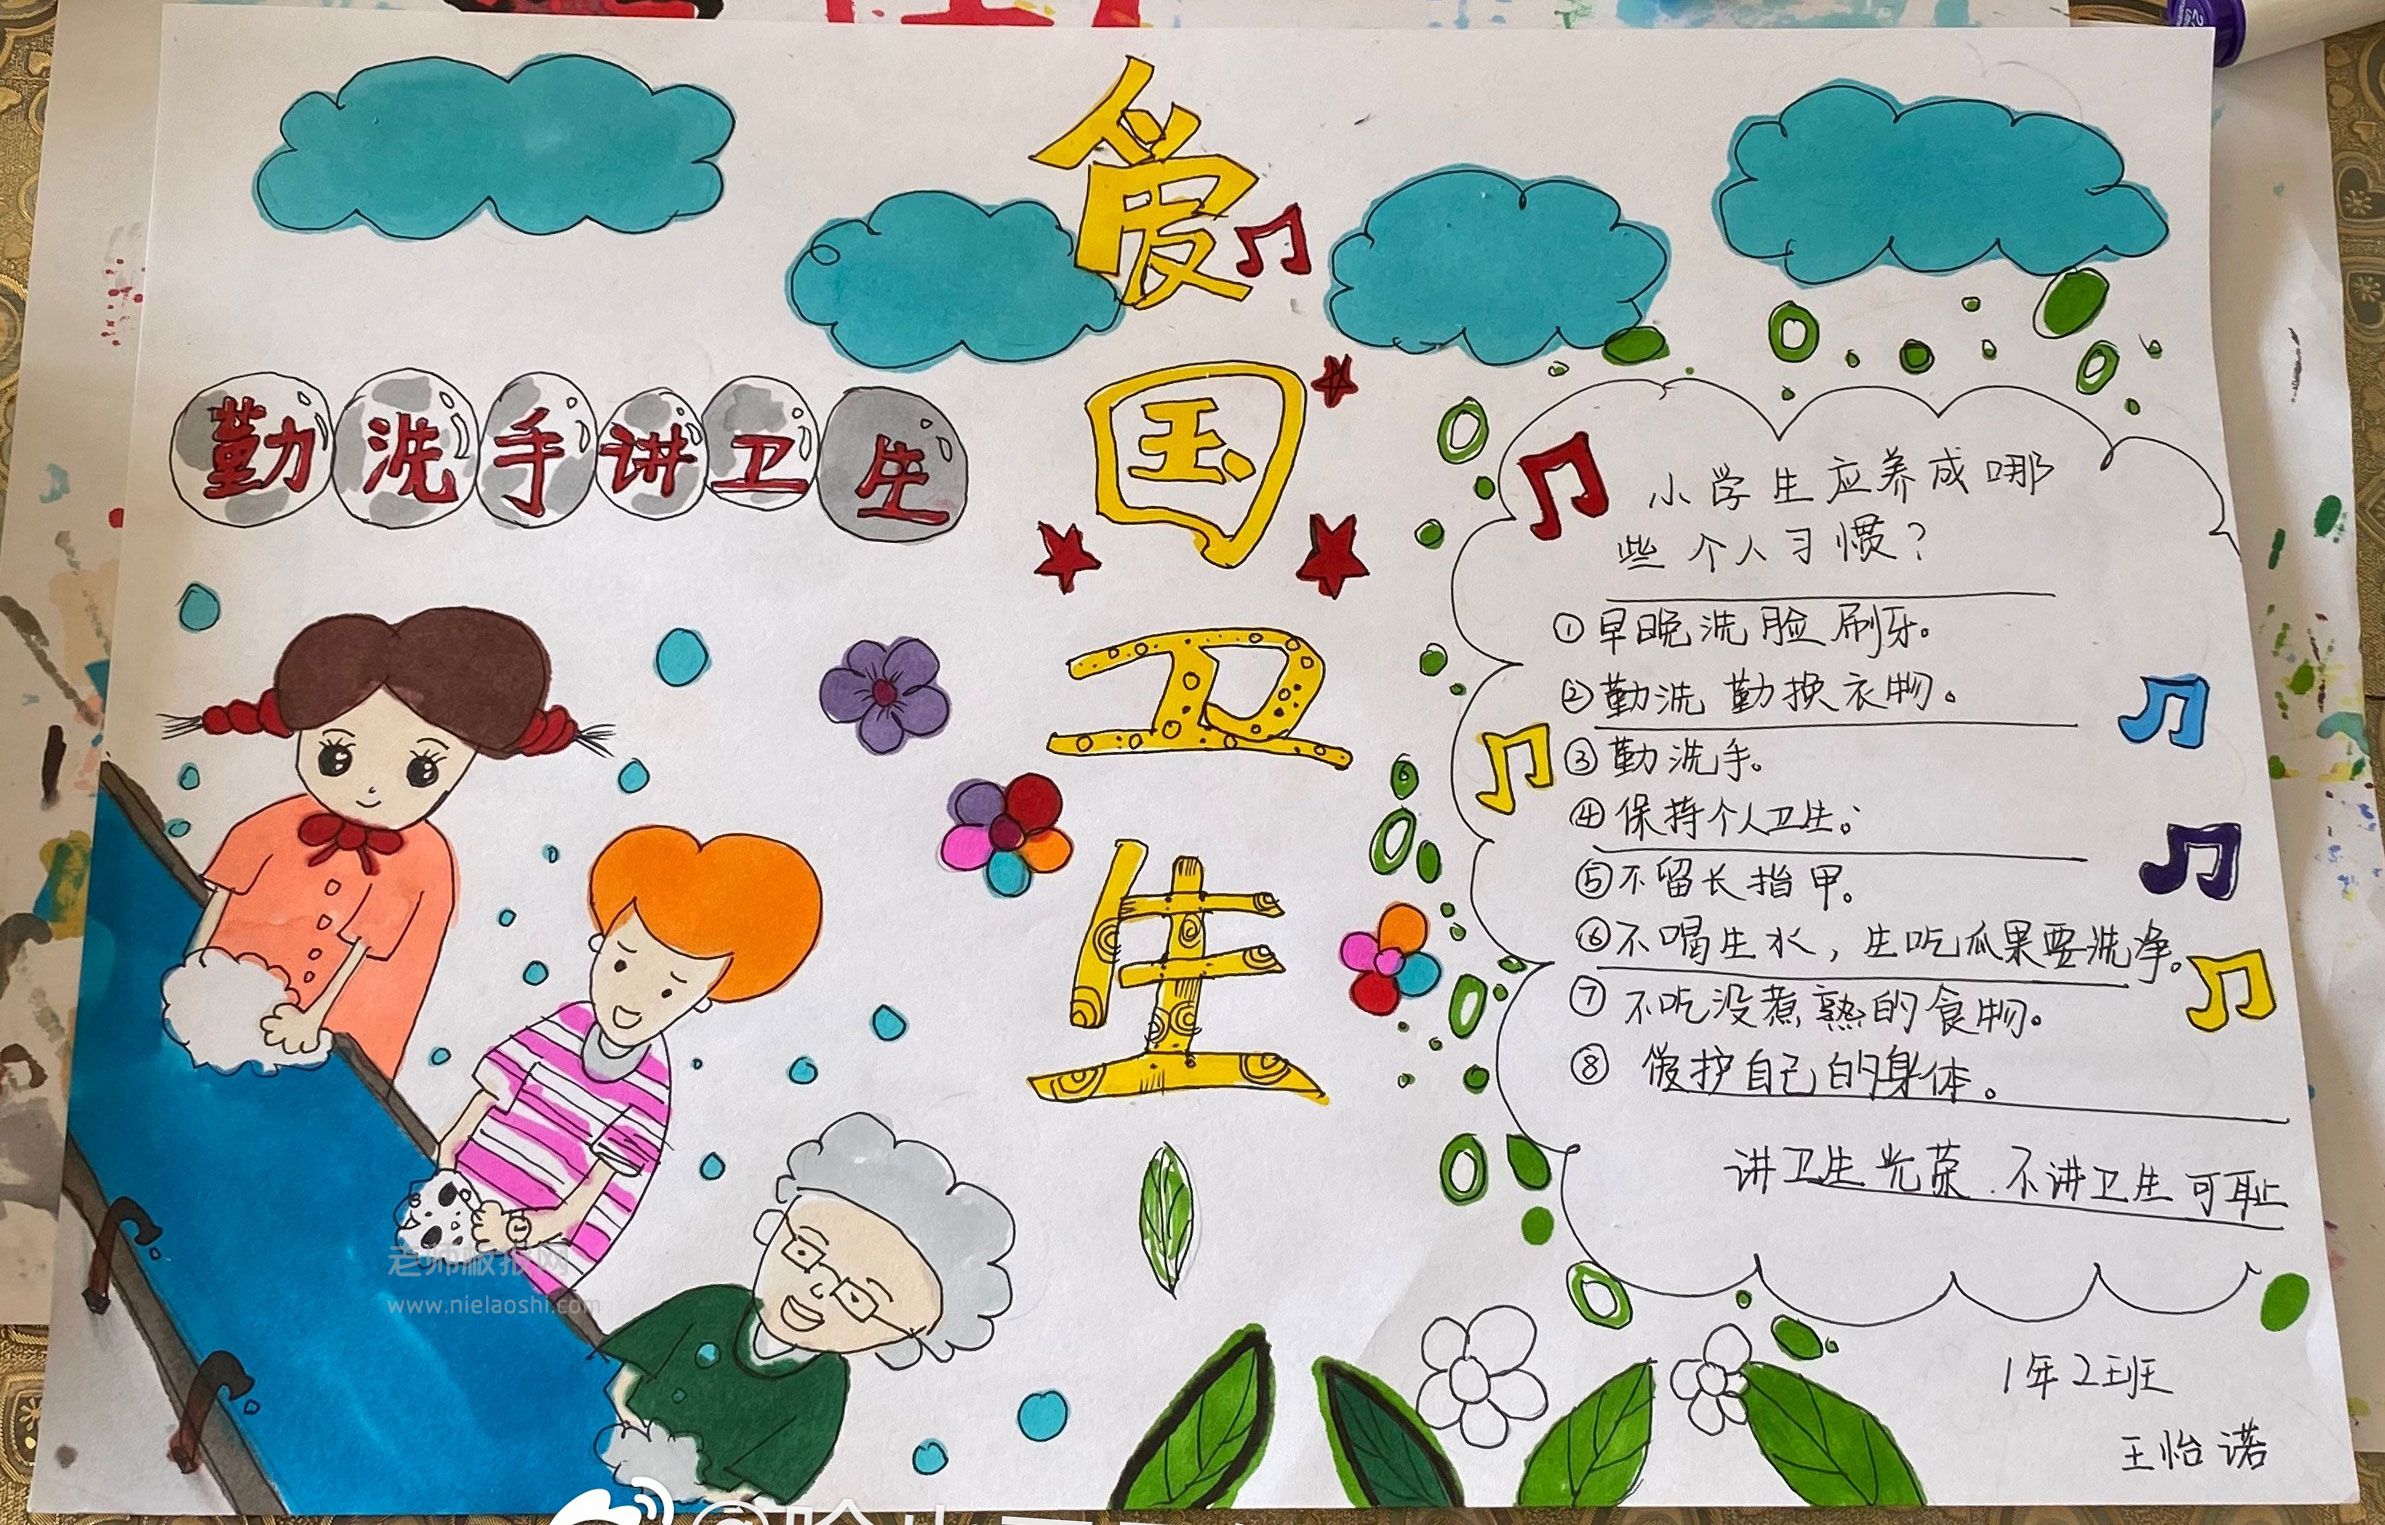 爱国卫生
勤洗手讲卫生
小学生应养成哪
些个人习惯?
①早晚洗脸刷牙。
②勤洗勤换衣物。
③勤洗手。
④保持个人卫生。
⑤不留长指甲。
⑥不喝生水,生吃瓜果要洗净。
⑦不吃没煮熟的食物。
⑧ 爱护自己的身体。
讲卫生光荣.不讲卫生可耻
1年2班
王怡诺
老师板报网
www.nielaoshi.com